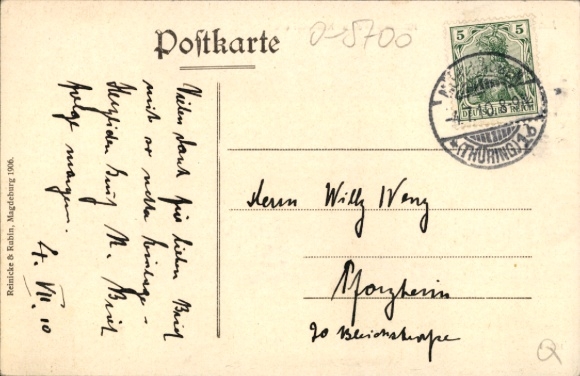 Postkarte
0-5700
5
5
DEUTSCHES REICH
(THÜRING) 1b
Vielen Dank für lieben Brief
mit so netter Einlage -
Herzlichen Gruß M. Brief
folgt morgen.
4. VII. 10
Herrn Willy Weng
Pforzheim
20 Bleichstraße
Reinicke & Rubin, Magdeburg 1906.
Q